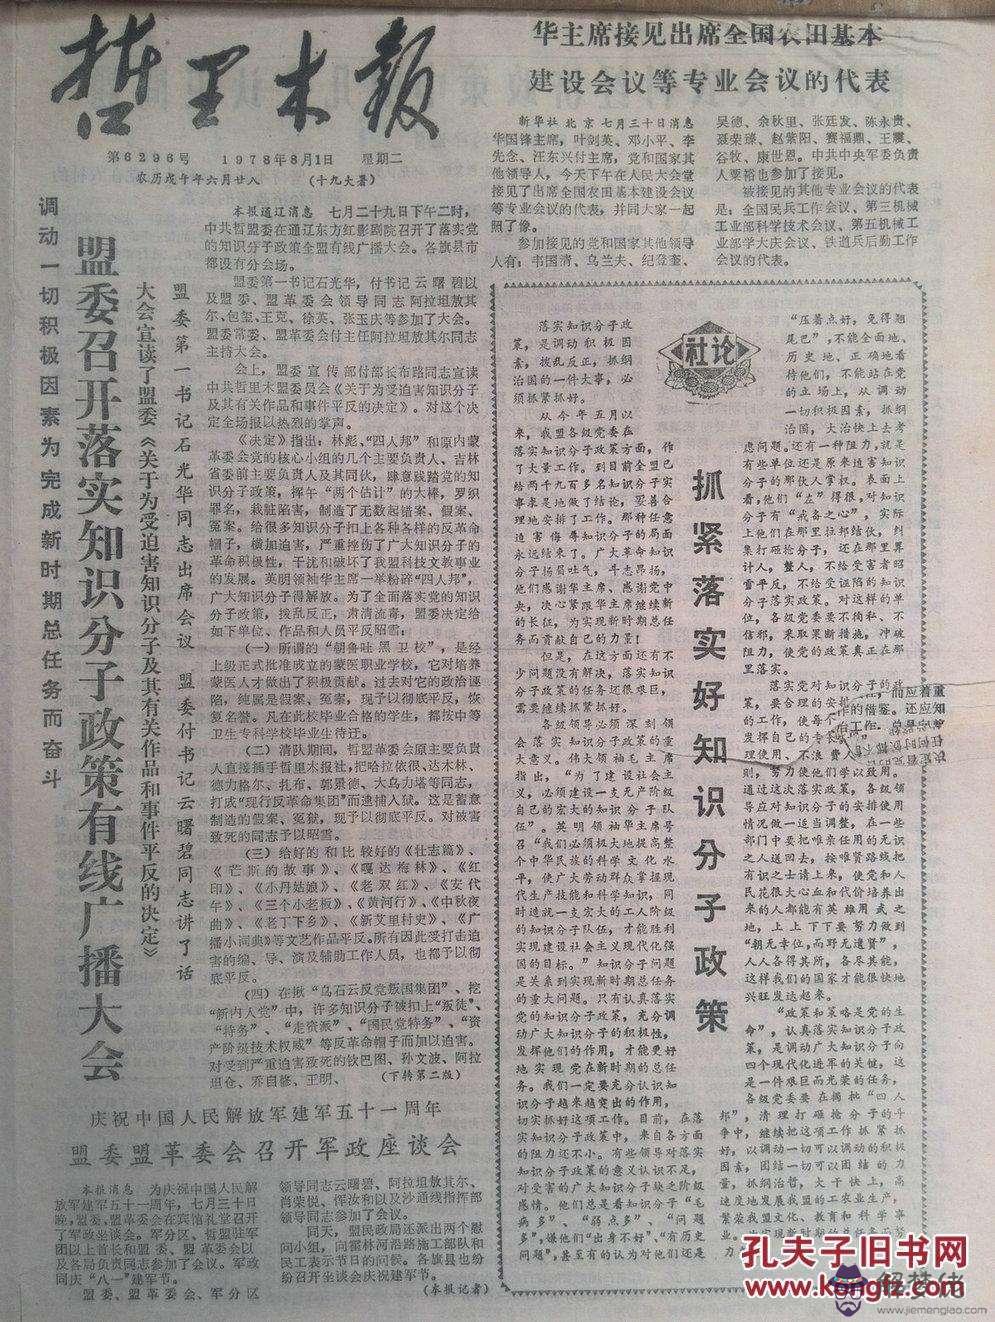 哲里木报
第6296号 1978年8月1日 星期二
农历戊午年六月廿八 (十九大暑)
华主席接见出席全国农田基本
建设会议等专业会议的代表
新华社北京七月三十日消息
华国锋主席,叶剑英、邓小平、李
先念、汪东兴付主席,党和国家其
他领导人,今天下午在人民大会堂
接见了出席全国农田基本建设会议
等专业会议的代表,并同大家一起
照了像。
参加接见的党和国家其他领导
人有:韦国清、乌兰夫、纪登奎、
吴德、余秋里、张廷发、陈永贵、
聂荣臻、赵紫阳、赛福鼎、王震、
谷牧、康世恩。中共中央军委负责
人粟裕也参加了接见。
被接见的其他专业会议的代表
是:全国民兵工作会议、第三机械
工业部科学技术会议、第五机械工
业部学大庆会议、铁道兵后勤工作
会议的代表。
调动一切积极因素为完成新时期总任务而奋斗
盟委召开落实知识分子政策有线广播大会
大会宣读了盟委《关于为受迫害知识分子及其有关作品和事件平反的决定》
盟委第一书记石光华同志出席会议 盟委付书记云曙碧同志讲了话
本报通辽消息 七月二十九日下午二时,
中共哲盟委在通辽东方红影剧院召开了落实党
的知识分子政策全盟有线广播大会。各旗县市
都设有分会场。
盟委第一书记石光华,付书记云曙碧以
及盟委、盟革委会领导同志阿拉坦敖其
尔、包玺、王克、徐英、张玉庆等参加了大会。
盟委常委、盟革委会付主任阿拉坦敖其尔同志
主持大会。
会上,盟委宣传部付部长布路同志宣读
中共哲里木盟委员会《关于为受迫害知识分子
及其有关作品和事件平反的决定》。对这个决
定全场报以热烈的掌声。
《决定》指出:林彪、“四人邦”和原内蒙
革委会党的核心小组的几个主要负责人、吉林
省委前主要负责人及其同伙,肆意践踏党的知
识分子政策,挥午“两个估计”的大棒,罗织
罪名,栽脏陷害,制造了无数起错案、假案、
冤案。给很多知识分子扣上各种各样的反革命
帽子,横加迫害,严重挫伤了广大知识分子的
革命积极性,干扰和破坏了我盟科技文教事业
的发展。英明领袖华主席一举粉碎“四人邦”,
广大知识分子得解放。为了全面落实党的知识
分子政策,拨乱反正,肃清流毒,盟委决定给
如下单位、作品和人员平反昭雪:
(一)所谓的“朝鲁吐黑卫校”,是经
上级正式批准成立的蒙医职业学校,它对培养
蒙医人才做出了积极贡献。过去对它的政治诬
陷,纯属是假案、冤案,现予以彻底平反,恢
复名誉。凡在此校毕业合格的学生,都按中等
卫生专科学校毕业生待迂。
(二)清队期间,哲盟革委会原主要负责
人直接插手哲里木报社,把哈拉依很、达木林、
德力格尔、扎布、郭景德、大乌力塔等同志,
打成“现行反革命集团”而逮捕入狱。这是蓄意
制造的假案、冤狱,现予以彻底平反。对被害
致死的同志予以昭雪。
(三)给好的和比较好的《壮志篇》、
《芒斯的故事》、《嘎达梅林》、《红
印》、《小丹姑娘》、《老双红》、《安代
午》、《三个小老板》、《黄河行》、《中秋夜
曲》、《老丁下乡》、《新艾里村史》、《广
播小词典》等文艺作品平反。所有因此受打击迫
害的编、导、演及辅助工作人员,也都予以彻
底平反。
(四)在揪“乌石云反党叛国集团”、挖
“新内人党”中,许多知识分子被扣上“叛徒”、
“特务”、“走资派”、“国民党特务”、“资
产阶级技术权威”等反革命帽子而加以迫害。
对受到严重迫害致死的钦巴图、孙文波、阿拉
坦仓、乔自修、王明、 (下转第二版)
庆祝中国人民解放军建军五十一周年
盟委盟革委会召开军政座谈会
本报消息 为庆祝中国人民解
放军建军五十一周年,七月三十日
晚,盟委、盟革委会在宾馆礼堂召开
了军政座谈会。军分区、哲盟驻军
团以上首长和盟委、盟革委会以
及各局负责同志参加了会议。军政
同庆“八一”建军节。
盟委、盟革委会、军分区
领导同志云曙碧、阿拉坦敖其尔、
肖荣悦、恽汝和以及沙通线指挥部
领导同志参加了会议。
同天,盟民政局还派出两个慰
问小组,向霍林河沿路施工部队和
民工表示节日的问候。各旗县也纷
纷召开坐谈会庆祝建军节。
(本报记者)
社论
抓紧落实好知识分子政策
落实知识分子政
策,是调动积极因
素,拨乱反正,抓纲
治国的一件大事,必
须抓紧抓好。
从今年五月以
来,我盟各级党委在
落实知识分子政策方面,作
了大量工作。到目前全盟已
结两千九百多名知识分子实
事求是地做了结论,妥善合
理地安排了工作。那种任意
迫害侮辱知识分子的局面
永远结束了。广大革命知识
分子扬眉吐气,斗志昂扬,
他们感谢华主席、感谢党中
央,决心紧跟华主席继续新
的长征,为实现新时期总任
务而贡献自己的力量!
但是,在这方面还有不
少问题没有解决,落实知识
分子政策的任务还很艰巨,
需要继续抓紧抓好。
各级领导必须深到领
会落实知识分子政策的重
大意义。伟大领袖毛主席
指出,“为了建设社会主
义,必须建设一支无产阶级
自己的宏大的知识分子队
伍”。英明领袖华主席号
召“我们必须极大地提高整
个中华民族的科学文化水
平,使广大劳动群众掌握现
代生产技能和科学知识,同
时造就一支宏大的工人阶级
的知识分子队伍,才能胜利
实现建设社会主义现代化强
国的目标。”知识分子问题
是关系到实现新时期总任务
的重大问题。只有认真落实
党的知识分子政策,充分调
动广大知识分子的积极性,
发挥他们的作用,才能更好
地实现党在新时期的总任
务。我们一定要充分认识知
识分子越来越突出的作用,
切实抓好这项工作。目前,在落
实知识分子政策中,来自各方面
的阻力还不小。有些领导对落实
知识分子政策的意义认识不足,
对受害的广大知识分子缺乏阶级
感情。他们总是看知识分子“毛
病多”、“弱点多”、“问题
多”,嫌他们“出身不好”、“有历史
问题”,甚至有的认为对他们还是
“压着点好,免得翘
尾巴”,不能全面地、
历史地、正确地看
待他们,不能站在党
的立场上,从调动
一切积极因素,抓纲
治国,大治快上去考
虑问题。还有一种阻力,就是
有些单位还是原来迫害知识
分子的那伙人掌权。表面上
看,他们“左”得很,对知识
分子有“戒备之心”,实际
上他们在那里拉邦结伙,纠
集打砸抢分子,还在那里算
计人,整人,不给受害者昭
雪平反,不给受诬陷的知识
分子落实政策。对这样的单
位,各级党委要不徇私、不
信邪,采取果断措施,冲破
阻力,使党的政策真正在那
里落实。
落实党对知识分子的政
策,要合理的安排
的工作,使每个
发挥自己的专长
理使用、不浪费人
则,努力使他们学以致用。
通过这次落实政策,各级领
导应对知识分子的安排使用
情况做一适当调整,在一些
部门中要把唯亲任用的无识
之人送回去,按唯贤路线把
有识之士请上来,使党和人
民花很大心血和代价培养出
来的人都能有英雄用武之
地,上上下下要努力做到
“朝无幸位,而野无遗贤”,
人人各得其所,各尽其能,
这样我们的国家才能很快地
兴旺发达起来。
“政策和策略是党的生
命”,认真落实知识分子政
策,是调动广大知识分子向
四个现代化进军的关键,这
是一件艰巨而光荣的任务,
各级党委要在揭批“四人
邦”,清理打砸抢分子的斗
争中,继续把这项工作抓紧抓
好,以调动一切可以调动的积极
因素,团结一切可以团结的力
量,抓纲治哲,大干快上,高
速度地发展我盟的工农业生产,
繁荣我盟文化、教育和科学事
业,
孔夫子旧书网
www.kongfz.com
解梦佬
www.jiemenglao.com